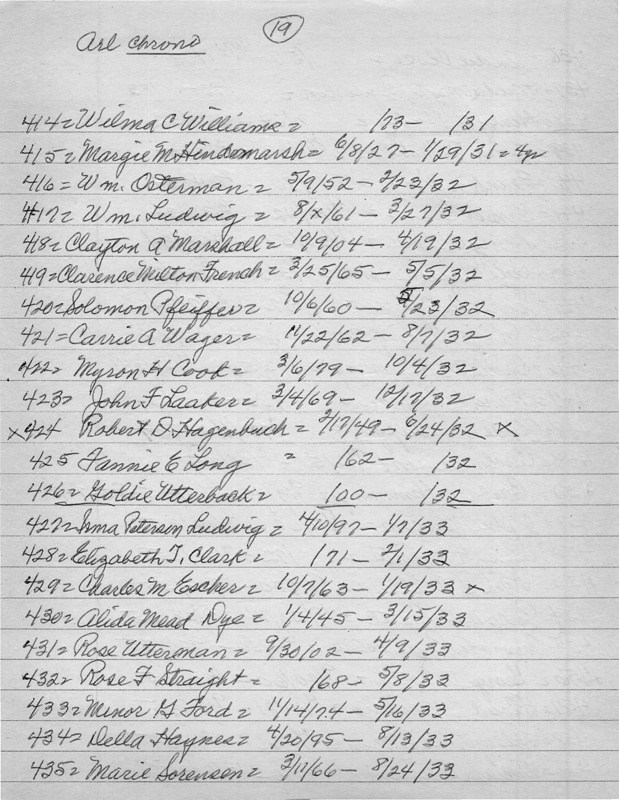 19
Arl chrono
414 = Wilma C Williams = /73 - /31
415 = Margie M Hindemarsh = 6/8/27 - 1/29/31 = 4yr
416 = Wm. Osterman = 5/9/52 - 2/23/32
417 = Wm. Ludwig = 8/x/61 - 3/27/32
418 = Clayton A Marshall = 10/9/04 - 4/19/32
419 = Clarence Milton French = 3/25/65 - 5/5/32
420 = Solomon Pfeiffer = 10/6/60 - 5/23/32
421 = Carrie A Wager = 11/22/62 - 8/7/32
422 = Myron H Cook = 3/6/79 - 10/4/32
423 = John F Laaker = 2/4/69 - 12/17/32
x 424 Robert D. Hagenbuch = 2/17/49 - 6/24/32 x
425 Fannie E Long = /62 - /32
426 = Goldie Utterback = /00 - /32
427 = Irma Petersen Ludwig = 4/10/97 - 1/7/33
428 = Elizabeth T. Clark = /71 - 2/1/33
429 = Charles M Escher = 10/7/63 - 1/19/33 x
430 = Alida Mead Dye = 1/4/45 - 3/15/33
431 = Rose Utterman = 9/30/02 - 4/9/33
432 = Rose F Straight = /68 - 5/8/33
433 = Minor G Ford = 11/14/74 - 5/16/33
434 = Della Haynes = 4/20/95 - 8/13/33
435 = Marie Sorensen = 3/11/66 - 8/24/33